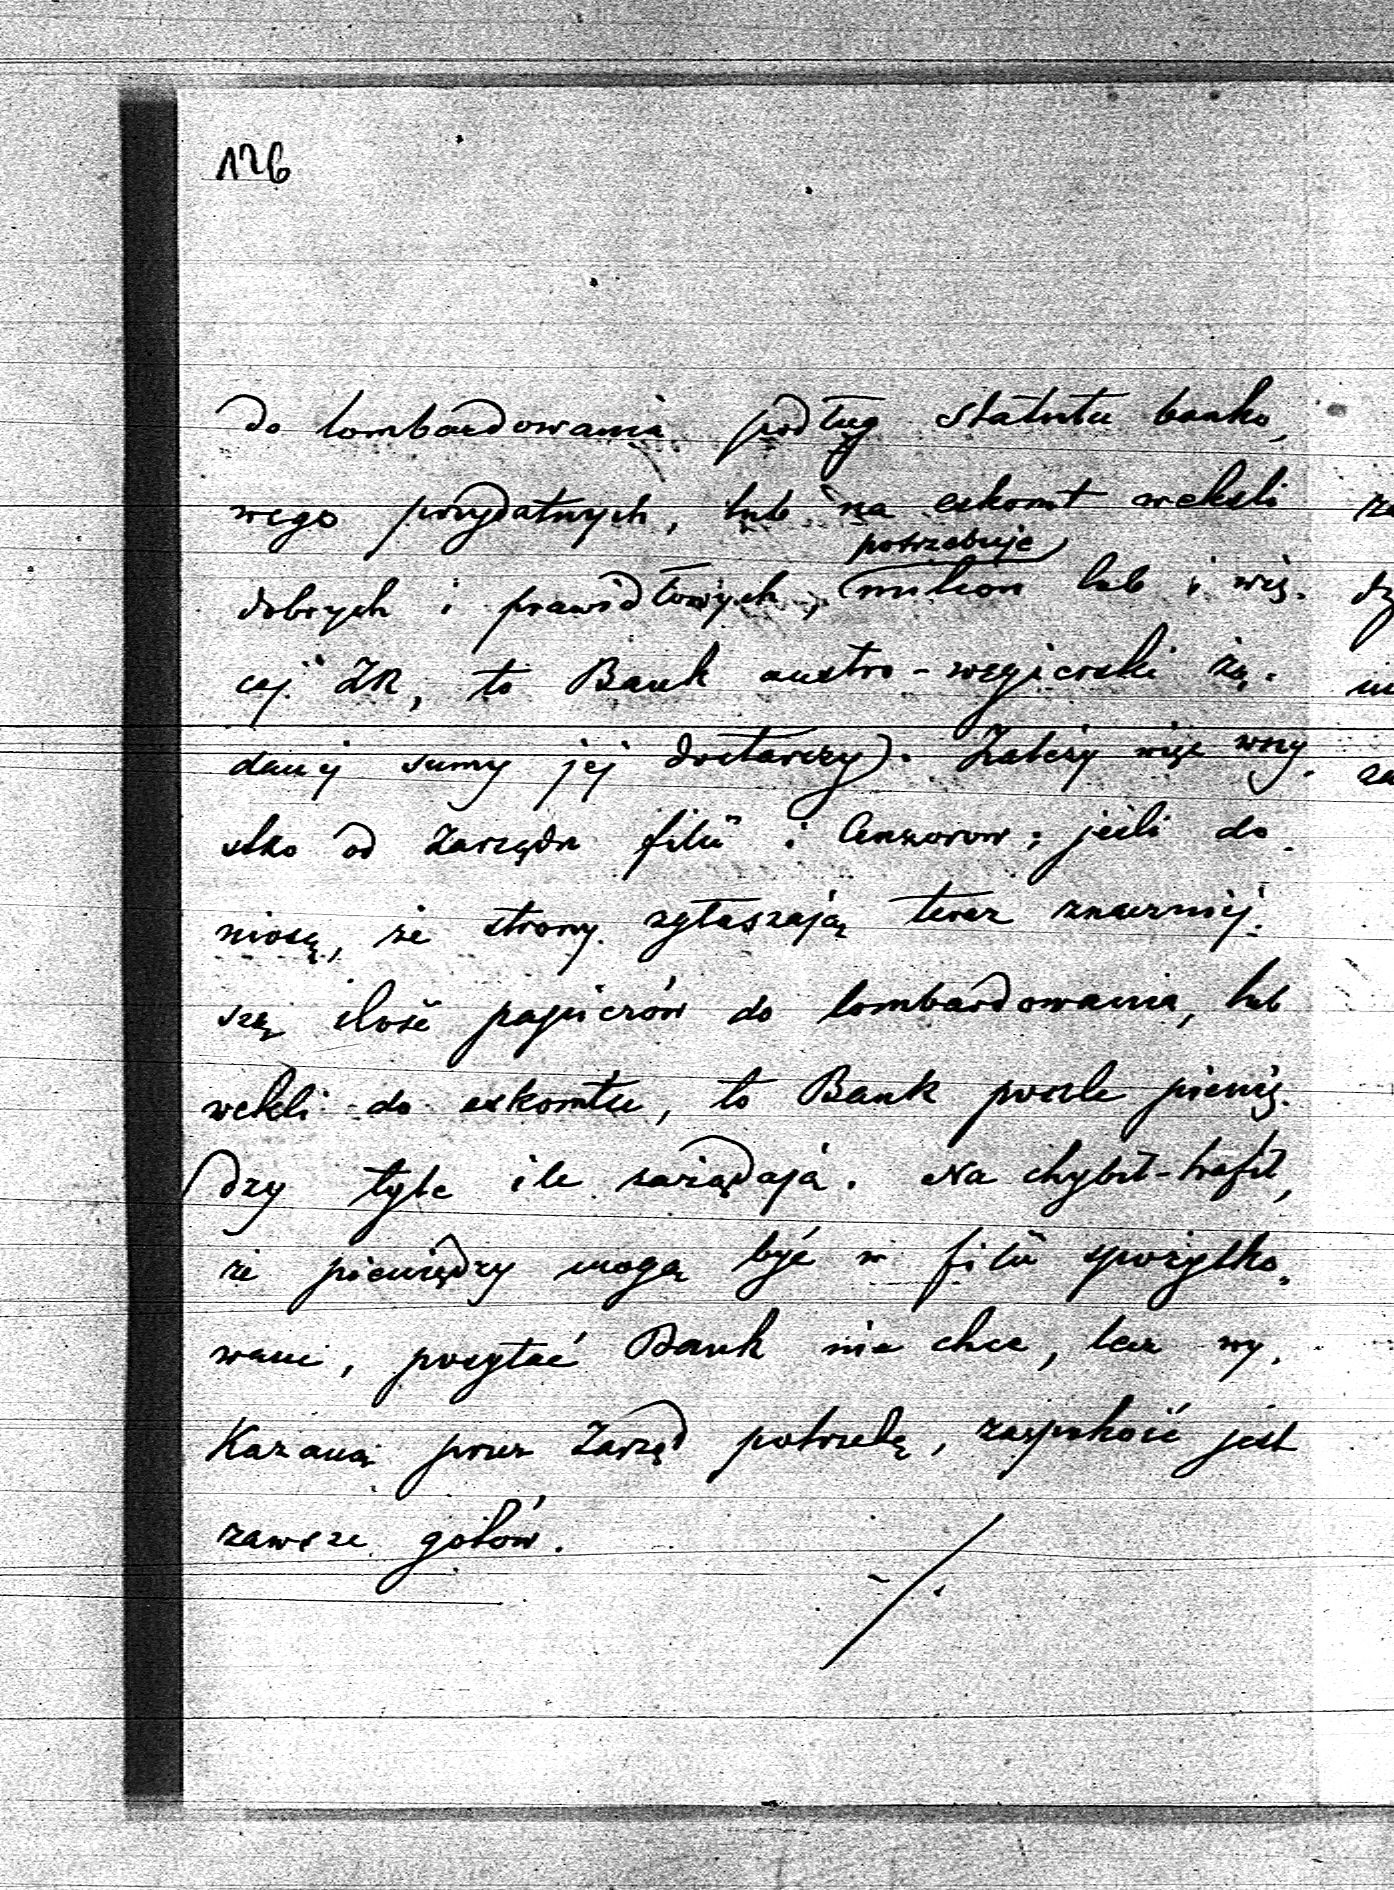 126
do lombardowania podług statutu banko,
wego przydatnych, lub na eskomt weksli
potrzebuje
dobrych i prawidłowych, milion lub i wię-
cej ZR, to Bank austro-węgierski żą-
danej sumy jej dostarczy). Zależy więc wszy-
stko od Zarządu filii i Cenzorow; jeśli do-
niosą, że strony zgłaszają teraz znaczniej-
szą ilość papierów do lombardowania, lub
weksli do eskomtu, to Bank poszle pienię-
dzy tyle ile zażądają. Na chybił-trafił,
że pieniędzy mogą być w filii spożytko-
wane, posyłać Bank nie chce, lecz wy-
Kazaną przez Zarząd potrzebę, zaspokoić jest
zawsze gotów.